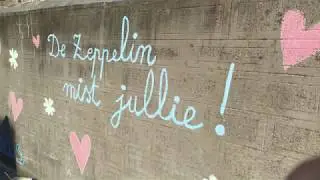 De Zeppelin
mist jullie!